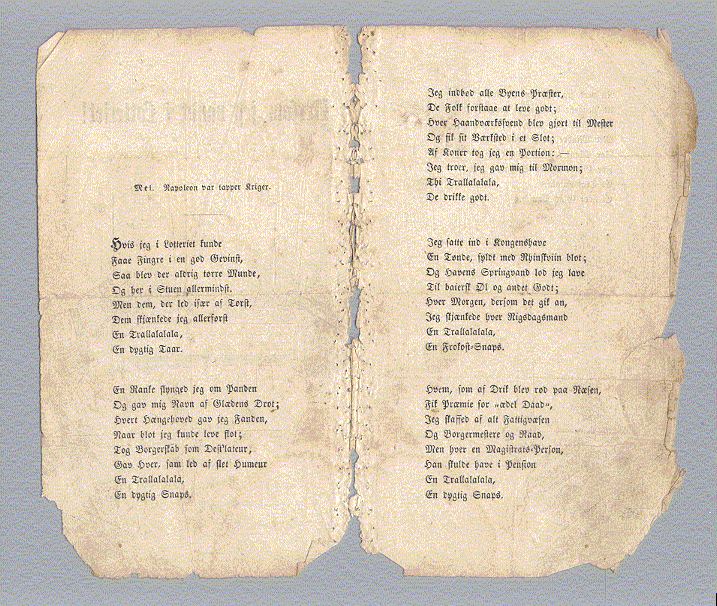 Mel. Napoleon var tapper Kriger.
Hvis jeg i Lotteriet kunde
Faae Fingre i en god Gevinst,
Saa blev der aldrig tørre Munde,
Og her i Stuen allermindst.
Men dem, der led især af Tørst,
Dem skjænkede jeg allerførst
En Trallalalala,
En dygtig Taar.
En Ranke slynged jeg om Panden
Og gav mig Navn af Glædens Drot;
Hvert Hængehoved gav jeg Fanden,
Naar blot jeg kunde leve flot;
Tog Borgerskab som Destilateur,
Gav Hver, som led af slet Humeur
En Trallalalala,
En dygtig Snaps.
Jeg indbød alle Byens Præster,
De Folk forstaae at leve godt;
Hver Haandværkssvend blev gjort til Mester
Og fik sit Værksted i et Slot;
Af Koner tog jeg en Portion: —
Jeg troer, jeg gav mig til Mormon;
Thi Trallalalala,
De drikke godt.
Jeg satte ind i Kongenshave
En Tønde, fyldt med Rhinskviin blot;
Og Havens Springvand lod jeg lave
Til baiersk Øl og andet Godt;
Hver Morgen, dersom det gik an,
Jeg skjænkede hver Rigsdagsmand
En Trallalalala,
En Frokost-Snaps.
Hvem, som af Drik blev rød paa Næsen,
Fik Præmie for »ædel Daad«,
Jeg skaffed af alt Fattigvæsen
Og Borgermestere og Raad,
Men hver en Magistrats-Person,
Han skulde have i Pension
En Trallalalala,
En dygtig Snaps.